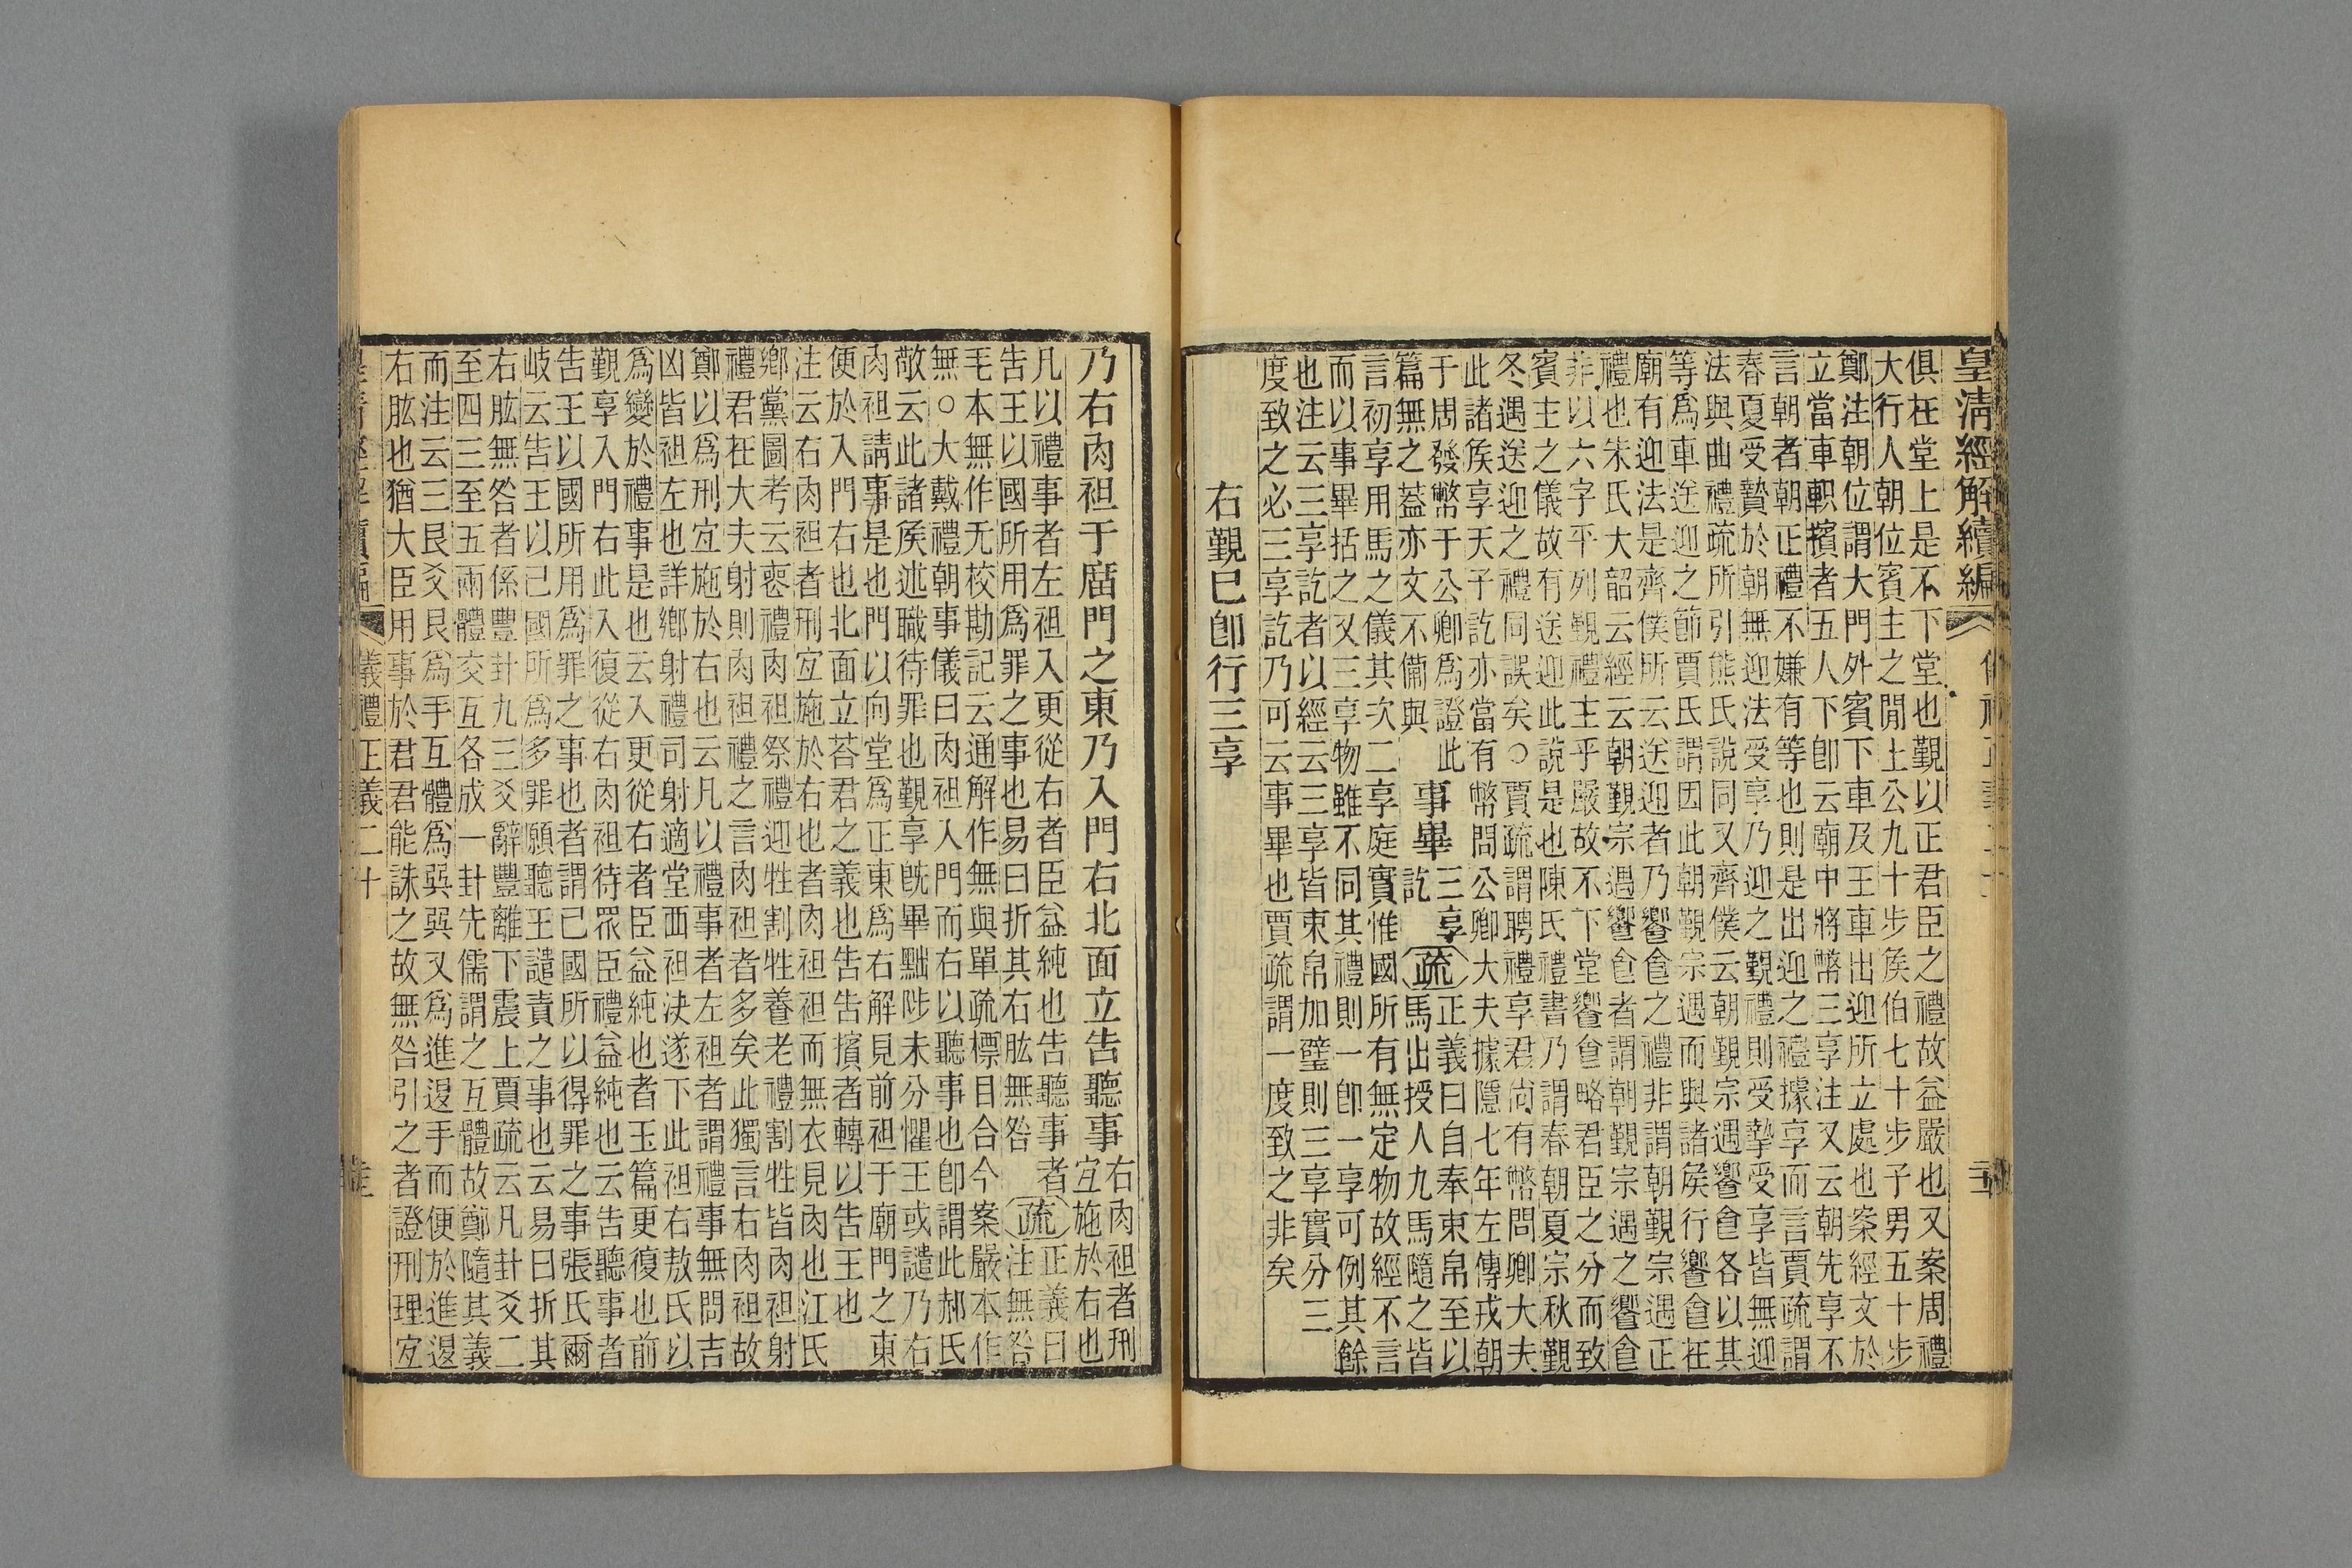 皇清經解續編
俱在堂上是不下堂也覲以正君臣之禮故益嚴也又案周禮
大行人朝位賓主之閒上公九十步矦伯七十步子男五十步
鄭注朝位謂大門外賓下車及王車出迎所立處也案經文於
立當車軹擯者五人下卽云廟中將幣三享注又云朝先享不
言朝者朝正禮不嫌有等也則是出迎之禮據享而言賈疏謂
春夏受贄於朝無迎法受享乃迎之覲禮則受摯受享皆無迎
法與曲禮疏所引熊氏說同又齊僕云朝覲宗遇饗食各以其
等爲車送迎之節賈氏謂因此朝覲宗遇而與諸矦行饗食在
廟有迎法是齊僕所云送迎者乃饗食之禮非謂朝覲宗遇正
禮也朱氏大韶云經云朝覲宗遇饗食者謂朝覲宗遇之饗食
非以六字平列覲禮主乎嚴故不下堂饗食略君臣之分而致
賓主之儀故有送迎此說是也陳氏禮書乃謂春朝夏宗秋覲
冬遇送迎之禮同誤矣○賈疏謂聘禮享君尚有幣問卿大夫
此諸矦享天子訖亦當有幣問公卿大夫據隱七年左傳戎朝
于周發幣于公卿爲證此
篇無之葢亦文不備與
事畢
三享
訖
疏
正義曰自奉束帛至以
馬出授人九馬隨之皆
言初享用馬之儀其次二享庭實惟國所有無定物故經不言
而以事畢括之又三享物雖不同其禮則一卽一享可例其餘
也注云三享訖者以經云三享皆束帛加璧則三享實分三
度致之必三享訖乃可云事畢也賈疏謂一度致之非矣
右覲已卽行三享
乃右肉袒于廟門之東乃入門右北面立告聽事
右肉袒者刑
宜施於右也
凡以禮事者左袒入更從右者臣益純也告聽事者
告王以國所用爲罪之事也易曰折其右肱無咎
疏
正義曰
注無咎
毛本無作无校勘記云通解作無與單疏標目合今案嚴本作
無○大戴禮朝事儀曰肉袒入門而右以聽事也卽謂此郝氏
敬云此諸矦述職待罪也覲享旣畢黜陟未分懼王或譴乃右
肉袒請事是也門以向堂爲正東爲右解見前袒于廟門之東
便於入門右也北面立荅君之義也告告擯者轉以告王也
注云右肉袒者刑宜施於右也者肉袒袒而無衣見肉也江氏
鄉黨圖考云喪禮肉袒祭禮迎牲割牲養老禮割牲皆肉袒射
禮君在大夫射則肉袒禮之言肉袒者多矣此獨言右肉袒故
鄭以爲刑宜施於右也云凡以禮事者左袒者謂禮事無問吉
凶皆袒左也詳鄉射禮司射適堂西袒決遂下此袒右敖氏以
爲變於禮事是也云入更從右者臣益純也者玉篇更復也前
覲享入門右此入復從右肉袒待眾臣禮益純也云告聽事者
告王以國所用爲罪之事也者謂已國所以得罪之事張氏爾
岐云告王以已國所爲多罪願聽王譴責之事也云易曰折其
右肱無咎者係豐卦九三爻辭豐離下震上賈疏云凡卦爻二
至四三至五兩體交互各成一卦先儒謂之互體故鄭隨其義
而注云三艮爻艮爲手互體爲巽巽又爲進退手而便於進退
右肱也猶大臣用事於君君能誅之故無咎引之者證刑理宜
儀禮正義二十